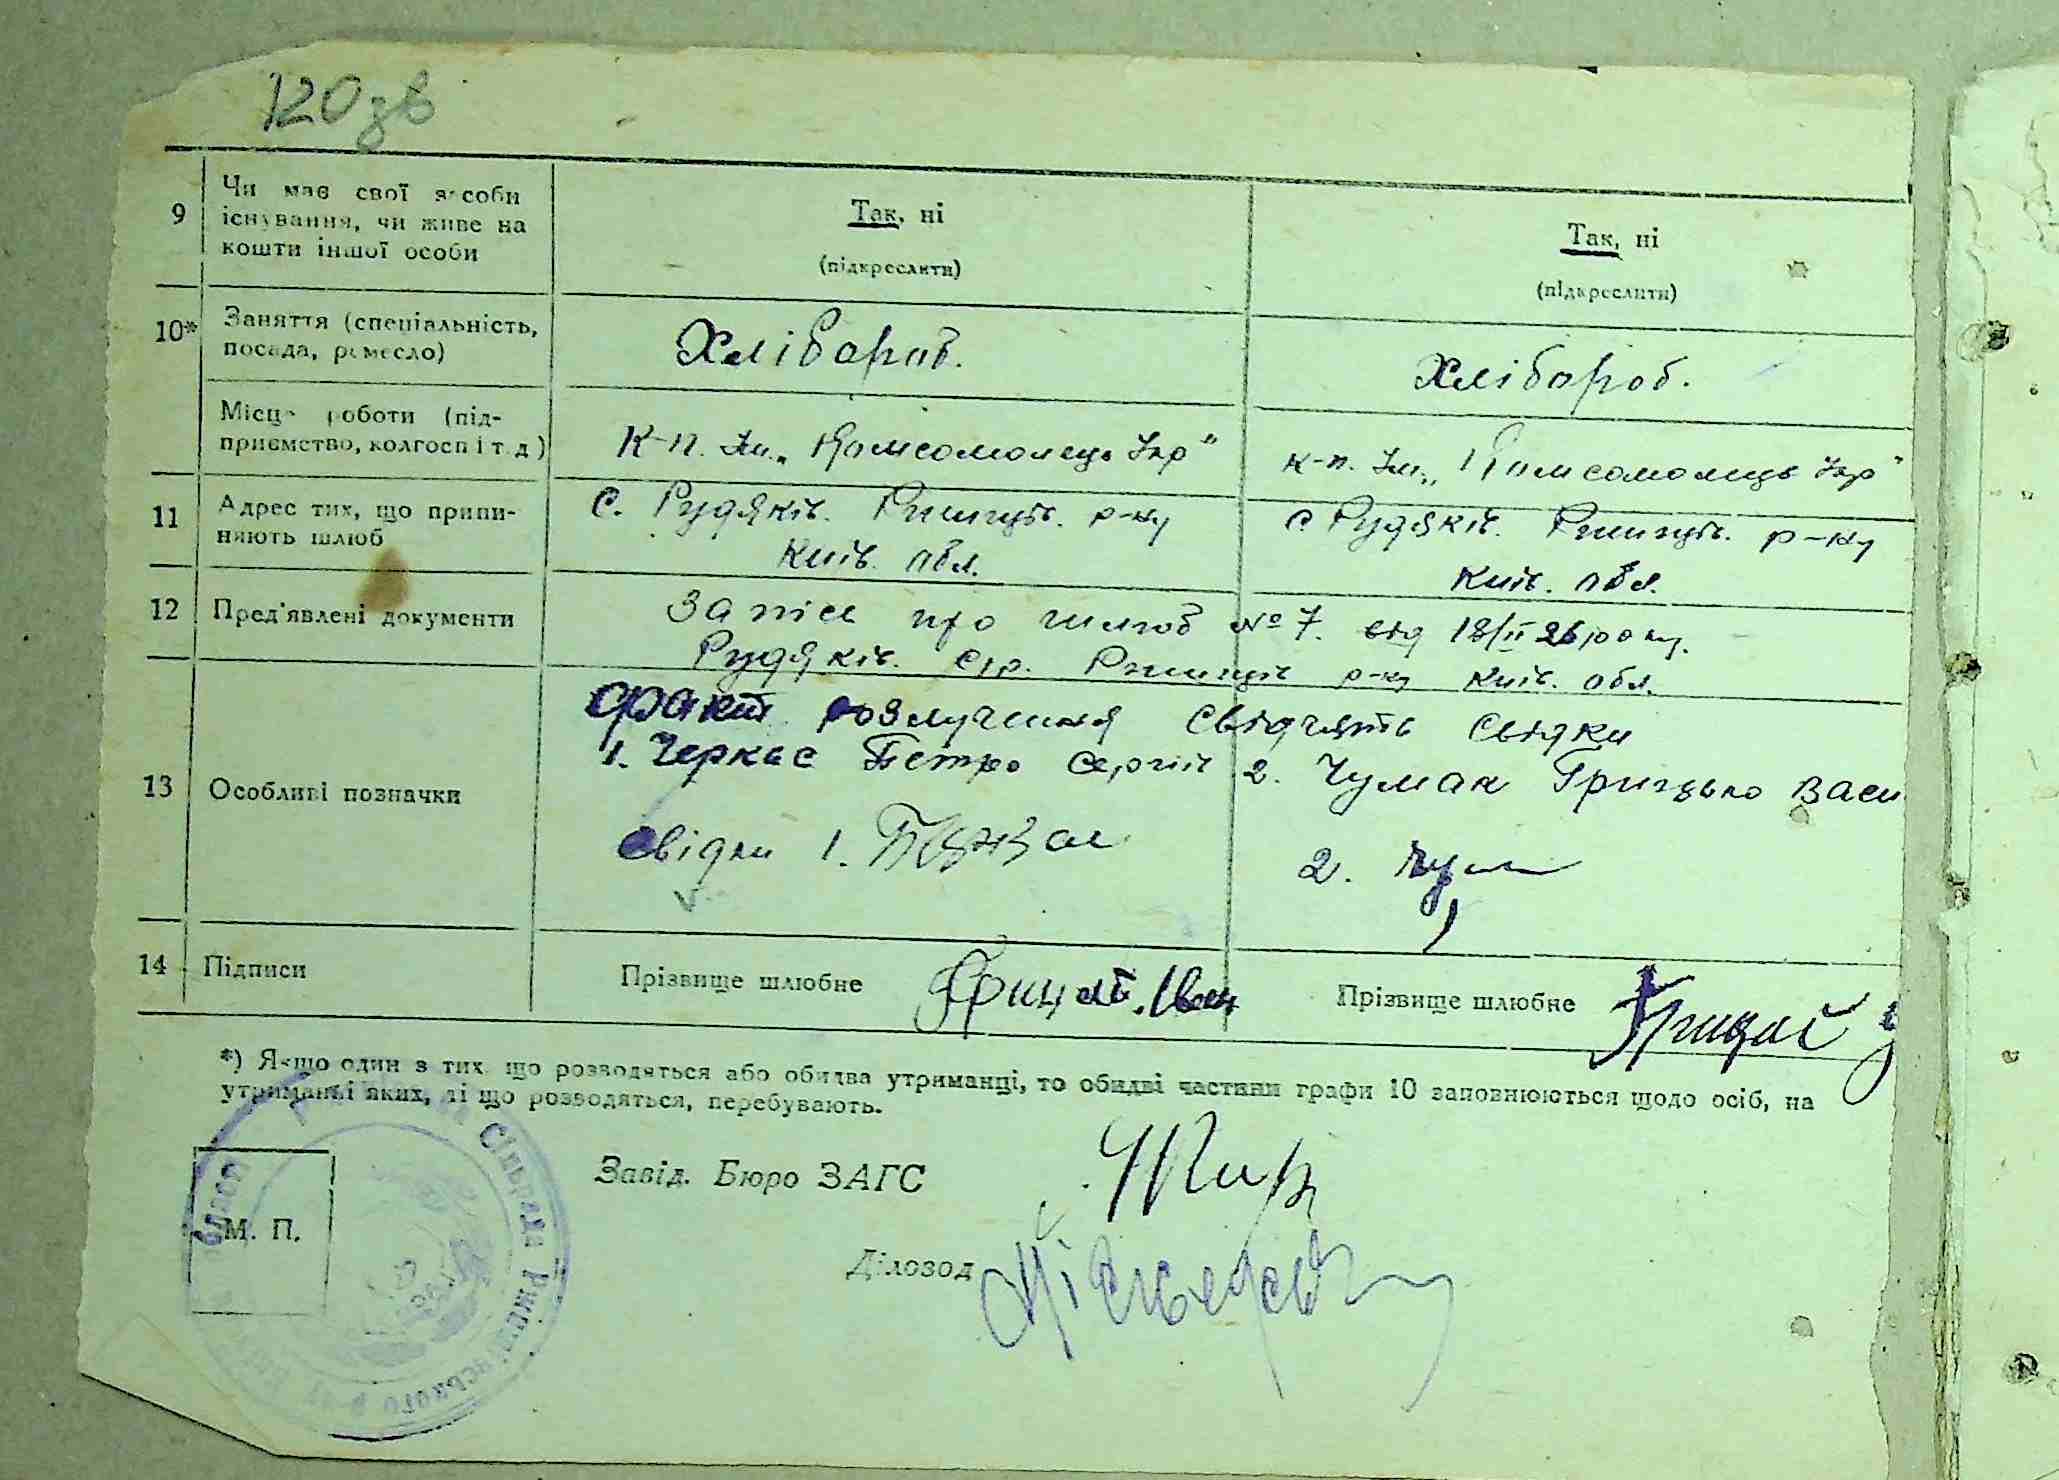 120 зв
9 Чи має свої засоби існування, чи живе на кошти іншої особи
Так, ні
(підкреслити)
Так, ні
(підкреслити)
10* Заняття (спеціальність, посада, ремесло)
Хлібороб.
Хлібороб.
Місце роботи (підприємство, колгосп і т. д)
к-п. Ім. „Комсомолець Укр"
к-п. Ім. „Комсомолець Укр"
11 Адрес тих, що припиняють шлюб
с. Рудяків. Ржищів. р-ну
Київ. обл.
с Рудяків. Ржищів. р-ну
Київ. обл.
12 Пред'явлені документи
Запіс про шлюб № 7. від 18/II 26 року.
Рудяків. с/р. Ржищів р-ну Київ. обл.
13 Особливі позначки
факт розлучення свідчать свідки
1. Черкас Петро Сергій 2. Чумак Грицько Васи
свідки 1.
2. Чум
14 Підписи
Прізвище шлюбне Грицай Іван
Прізвище шлюбне Грицай
*) Якщо один з тих, що розводяться або обидва утриманці, то обидві частини графи 10 заповнюються щодо осіб, на
утриманні яких, ті що розводяться, перебувають.
Завід. Бюро ЗАГС
Діловод
М. П.
Сільрада Ржищівського р-ну